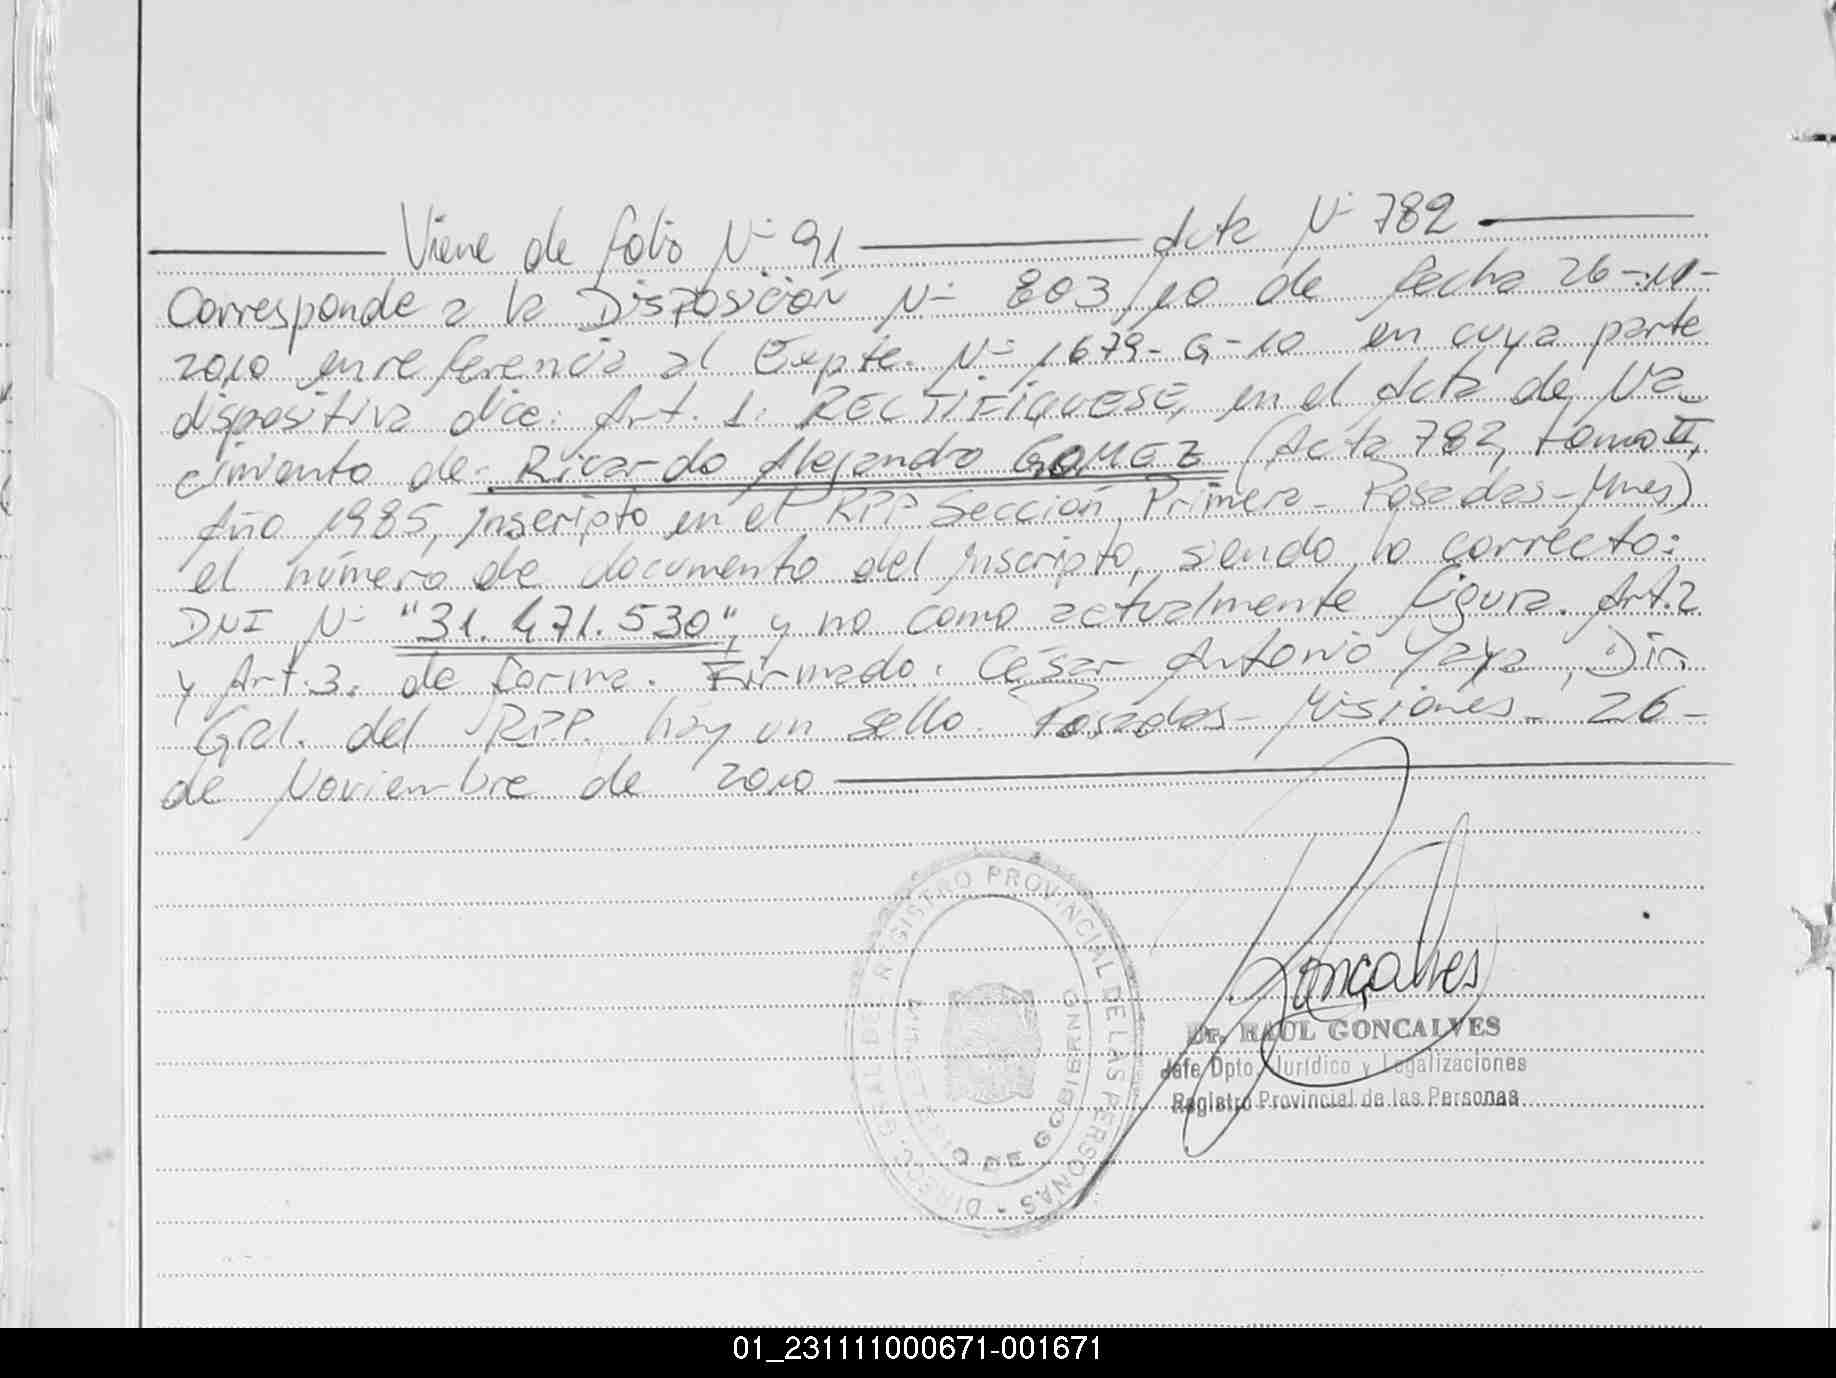 Viene de folio Nº 91 Acta Nº 782
Corresponde a la Disposición Nº 803/10 de fecha 26-11-
2010 en referencia al Expte. Nº 1679-G-10 en cuya parte
dispositiva dice: Art. 1: RECTIFIQUESE, en el Acta de Na
cimiento de: Ricardo Alejandro GOMEZ (Acta 782, tomo II,
Año 1985, Inscripto en el RPP. Sección Primera - Posadas - Mnes)
el número de documento del Inscripto, siendo lo correcto:
DNI Nº "31.471.530", y no como actualmente figura. Art. 2
y Art. 3. de forma. Firmado: César Antonio Yaya, Dir.
Gral. del RPP. hay un sello. Posadas - Misiones - 26 -
de Noviembre de 2010
DIREC. GRAL DEL REGISTRO PROVINCIAL DE LAS PERSONAS
O DE GOBIERNO
Gonçalves
Dr. RAUL GONCALVES
Jefe Dpto. Jurídico y Legalizaciones
Registro Provincial de las Personas
01_231111000671-001671